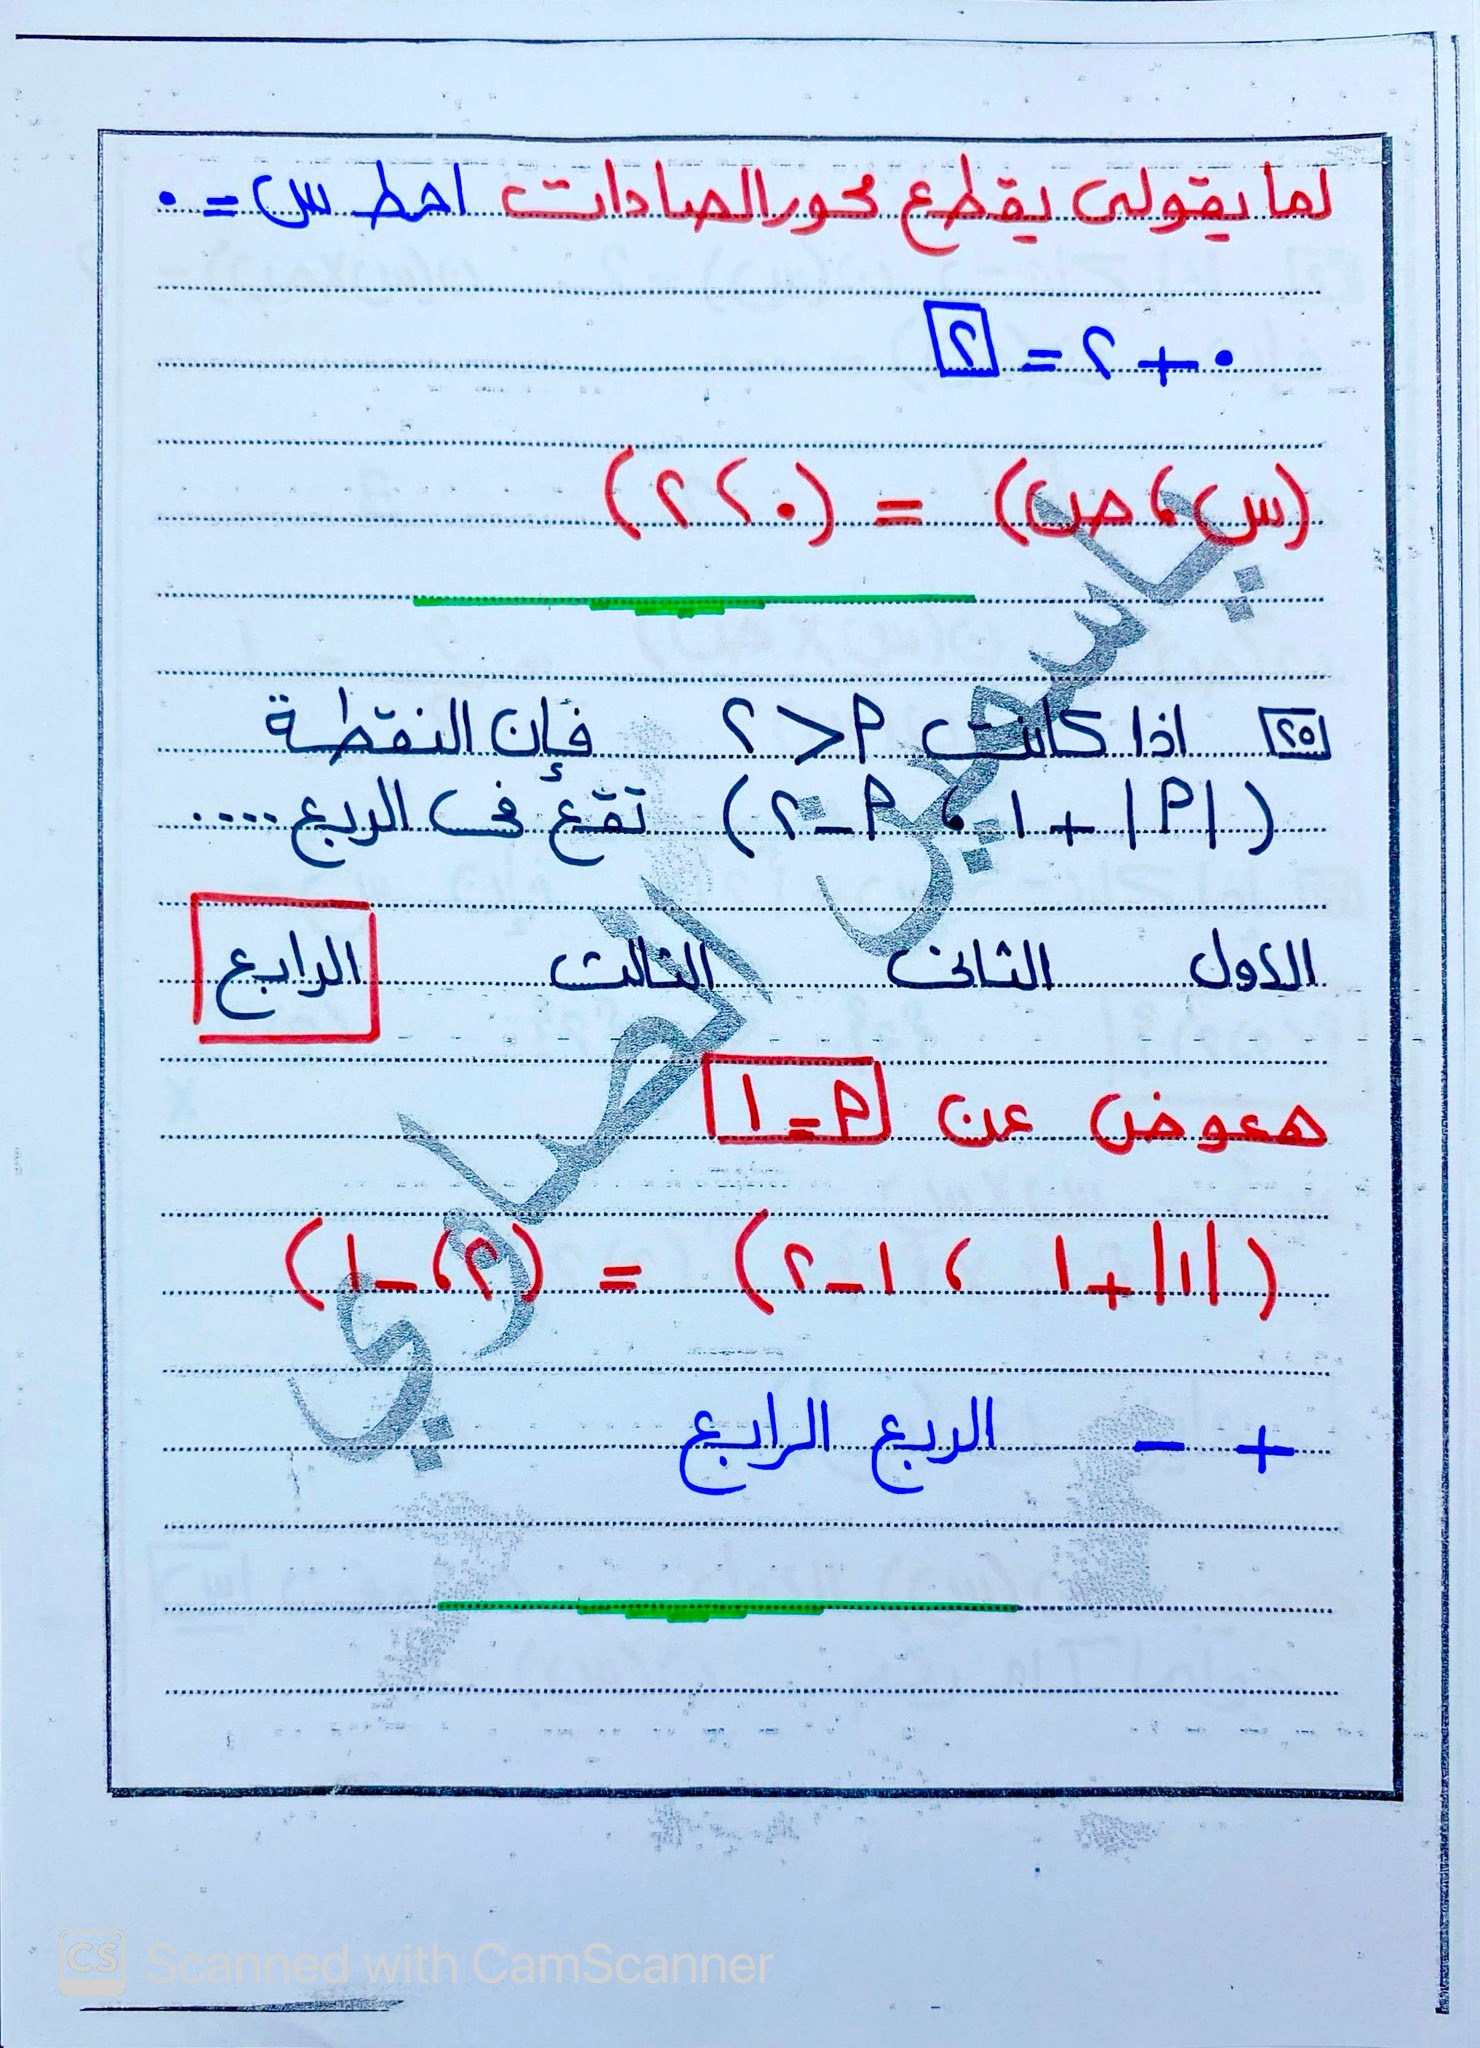 لما يقولى يقطع محور الصادات احط س = ٠
٠ + ٢ = ٢
(س ، ص) = (٠ ، ٢)
٢٥ اذا كانت ٢ > م فإن النقطة
( |م| + ١ ، م - ٢ ) تقع فى الربع ....
الاول الثانى الثالث الرابع
هعوض عن م = ١
( |١| + ١ ، ١ - ٢ ) = (٢ ، -١)
+ - الربع الرابع
ياسمين الصاوي
CS Scanned with CamScanner